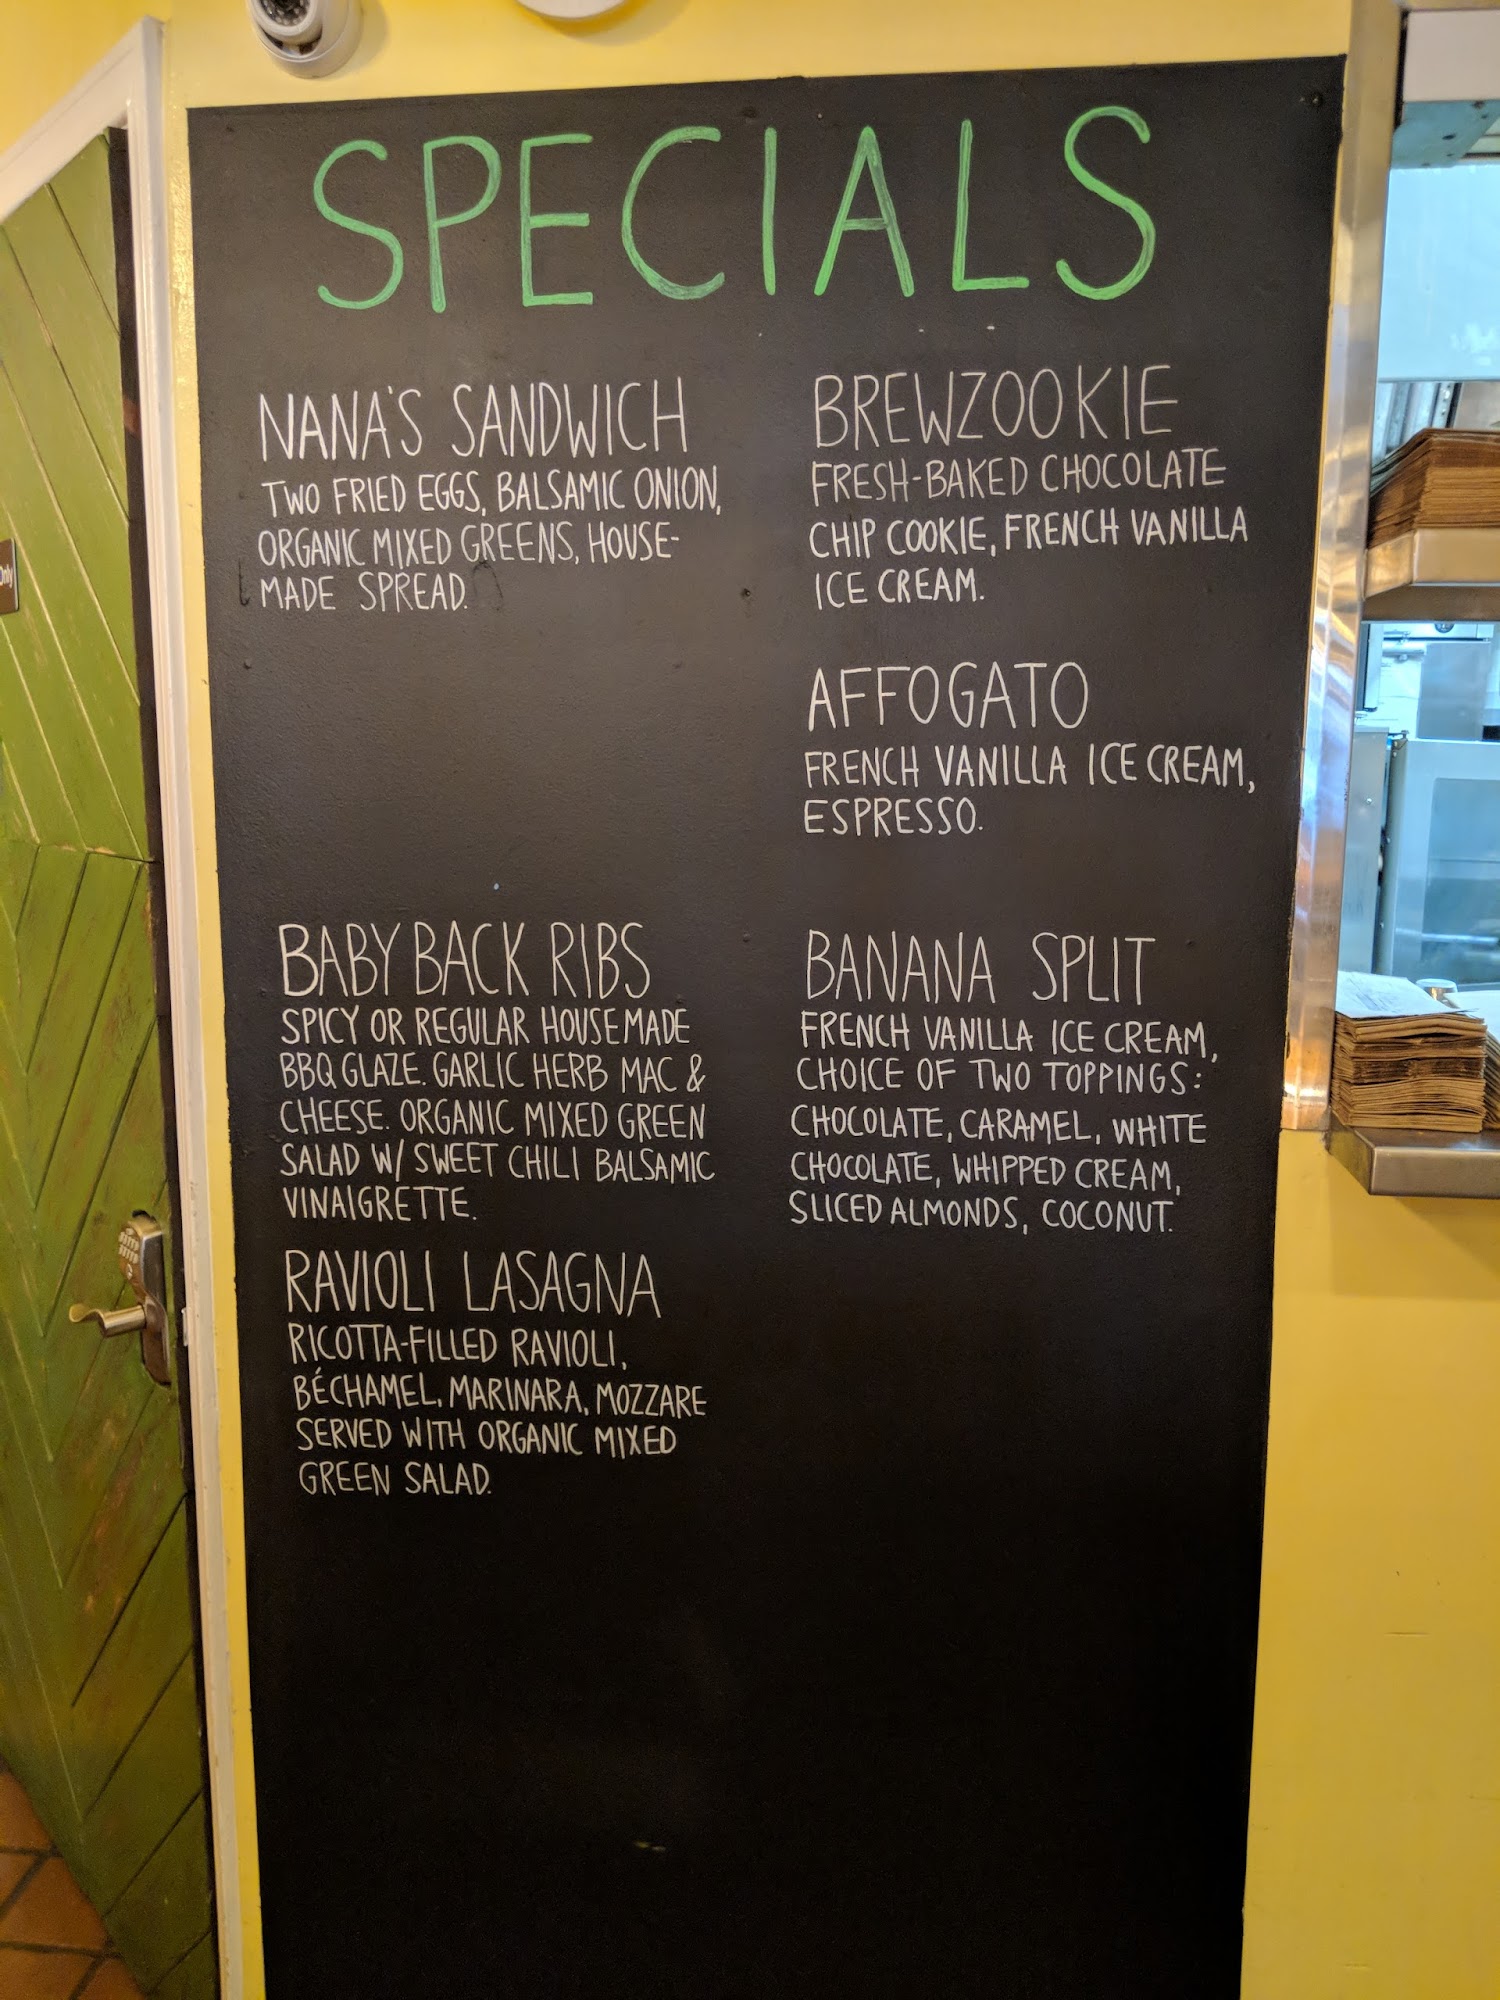 SPECIALS
NANA'S SANDWICH
TWO FRIED EGGS, BALSAMIC ONION,
ORGANIC MIXED GREENS, HOUSE-
MADE SPREAD.
BABY BACK RIBS
SPICY OR REGULAR HOUSEMADE
BBQ GLAZE. GARLIC HERB MAC &
CHEESE. ORGANIC MIXED GREEN
SALAD W/ SWEET CHILI BALSAMIC
VINAIGRETTE.
RAVIOLI LASAGNA
RICOTTA-FILLED RAVIOLI,
BÉCHAMEL, MARINARA, MOZZARE
SERVED WITH ORGANIC MIXED
GREEN SALAD.
BREWZOOKIE
FRESH-BAKED CHOCOLATE
CHIP COOKIE, FRENCH VANILLA
ICE CREAM.
AFFOGATO
FRENCH VANILLA ICE CREAM,
ESPRESSO.
BANANA SPLIT
FRENCH VANILLA ICE CREAM,
CHOICE OF TWO TOPPINGS:
CHOCOLATE, CARAMEL, WHITE
CHOCOLATE, WHIPPED CREAM,
SLICED ALMONDS, COCONUT.
Only